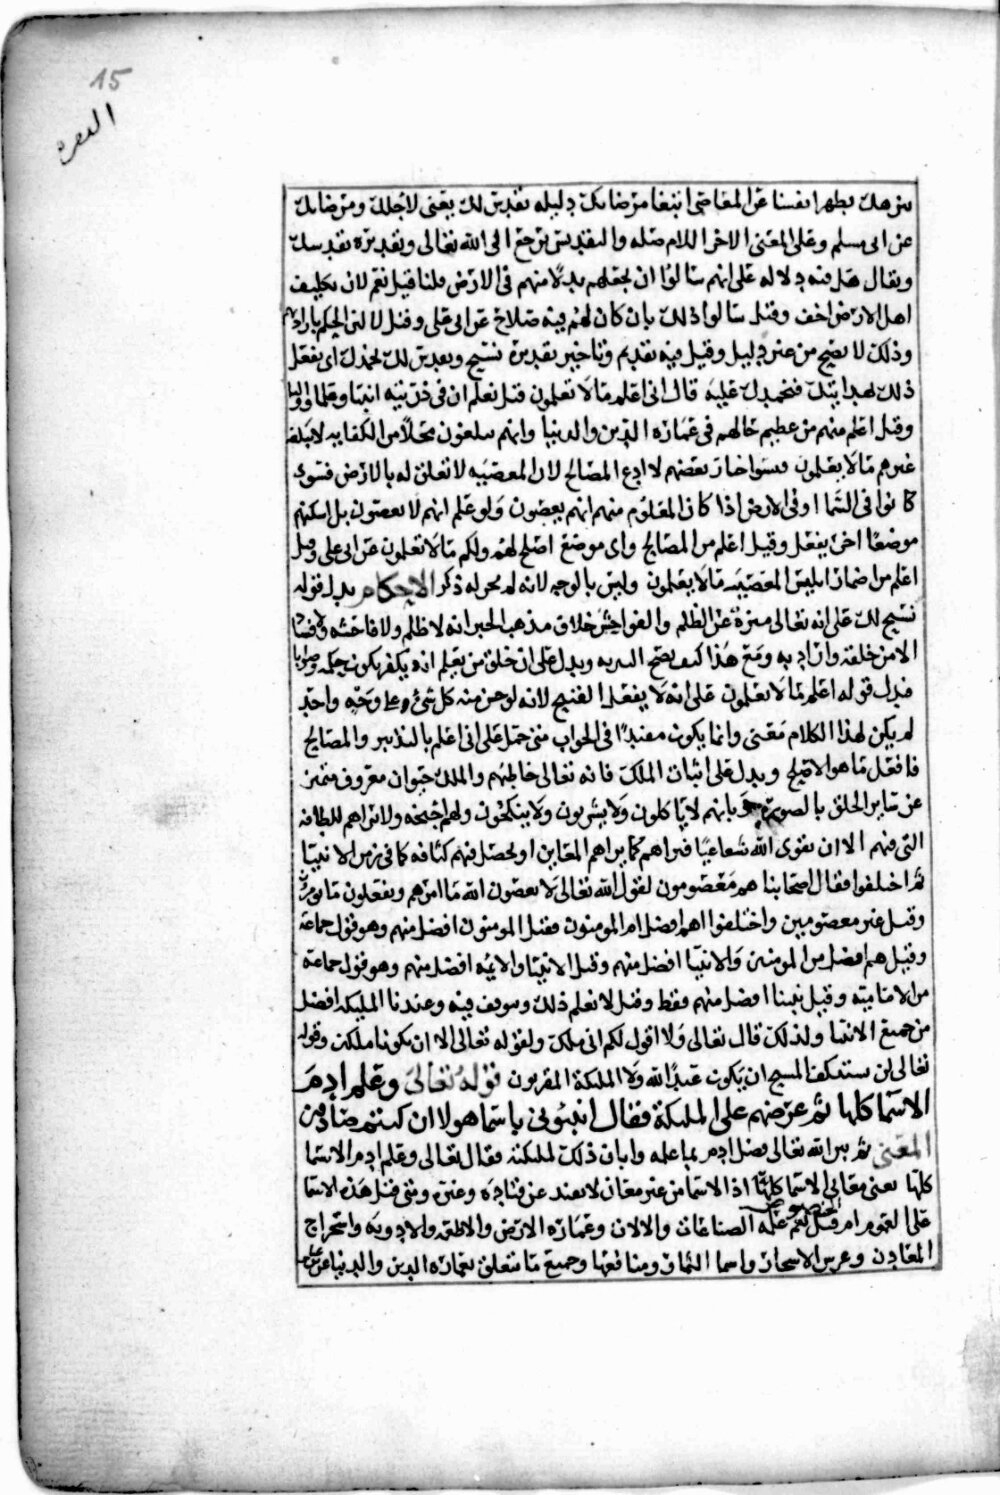 15
البقره
ننزهك نطهر انفسنا عن المعاصي ابتغا مرضاتك دليله نقدس لك يعني لاجلك ومرضاتك
عن ابي مسلم وعلى المعنى الاخر اللام صله والتقديس يرجع الى الله تعالى وتقديره نقدسك
ويقال هل فيه دلاله على انهم سالوا ان يجعلهم بدلا منهم في الارض قلنا قيل نعم لان تكليف
اهل الارض اخف وقيل سالوا ذلك بان كان لهم فيه صلاح عن ابي علي وقيل لا لان الحكم
وذلك لا يصح من غير دليل وقيل فيه تقديم وتاخير تقديره نسبح ونقدس لك بحمدك اي نفعل
ذلك بهدايتك فنحمدك عليه قال اني اعلم ما لا تعلمون قيل نعلم ان في ذريته انبيا وعلما
وقيل اعلم منهم من عظيم حالهم في عمارة الدين والدنيا وانهم سلعون محلا من الكفايه لا يبلغه
غيرهم ما لا يعلمون فسوا حال بعضهم المصالح لان المعصيه لا تعلق له بالارض فسوى
كانوا في السما او في الارض اذا كان المعلوم منهم انهم يعصون ولو علم انهم لا يعصون بل اسكنهم
موضعا اخر يفعل وقيل اعلم من المصالح واي موضع اصلح لهم ولكم ما لا تعلمون عن ابي علي وقيل
اعلم من اضمار ابليس المعصيه ما لا يعلمون وليس بالوجه لانه لم يجر له ذكر الاحكام يدل قوله
نسبح لك على انه تعالى منزه عن الظلم والفواحش خلاف مذهب الجبر انه لا ظلم ولا فاحشه ولا فساد
الا من خلقه واراد به ومع هذا كيف يصح التنزيه ويدل على ان خلق من يعلم انه يكفر يكون حكمه وصوابا
فيدل قوله اعلم ما لا تعلمون على انه لا يفعل القبيح لانه لو حسن منه كل شئ وعلى وجه واحد
لم يكن لهذا الكلام معنى وانما يكون مفيدا في الجواب متى حمل على اني اعلم بالتدبير والمصالح
فافعل ما هو الاصلح ويدل على اثبات الملك فانه تعالى خاطبهم والملك حيوان معروف متميز
عن ساير الخلق بالصورة وبانهم لا ياكلون ولا يشربون ولا ينكحون ولهم اجنحه ولا نراهم للطافه
التي فيهم الا ان يقوى الله شعاعنا فنراهم كما يراهم المعاين او يحصل فيهم كثافه كما في زمن الانبيا
ثم اختلفوا فقال اصحابنا هم معصومون لقول الله تعالى لا يعصون الله ما امرهم ويفعلون ما يؤمرون
وقيل غير معصومين واختلفوا اهم افضل ام المومنون فقيل المومنون افضل منهم وهو قول جماعة
وقيل هم افضل من المومنين والانبيا افضل منهم وقيل الانبيا والايمه افضل منهم وهو قول جماعة
من الاماميه وقيل نبينا افضل منهم فقط وقيل لا نعلم ذلك ونوقف فيه وعندنا المليكه افضل
من جميع الانبيا ولذلك قال تعالى ولا اقول لكم اني ملك ولقوله تعالى الا ان تكونا ملكين وقوله
تعالى لن يستنكف المسيح ان يكون عبدا لله ولا الملئكة المقربون قوله تعالى وعلم ادم
الاسما كلها ثم عرضهم على المليكة فقال انبئوني باسما هولا ان كنتم صادقين
المعنى ثم بين الله تعالى فضل ادم بما علمه وابان ذلك لمليكته فقال تعالى وعلم ادم الاسما
كلها يعني معاني الاسما كلها اذ الاسما من غير معان لا يفيد عن قتادة وغيره ومتى قيل هذه الاسما
على العموم ام الخصوص قيل نعم علمه الصناعات والالات وعمارة الارض والاطعمه والادويه واستخراج
المعادن وغرس الاشجار واسما الثمار ومنافعها وجميع ما يتعلق بعمارة الدين والدنيا عن